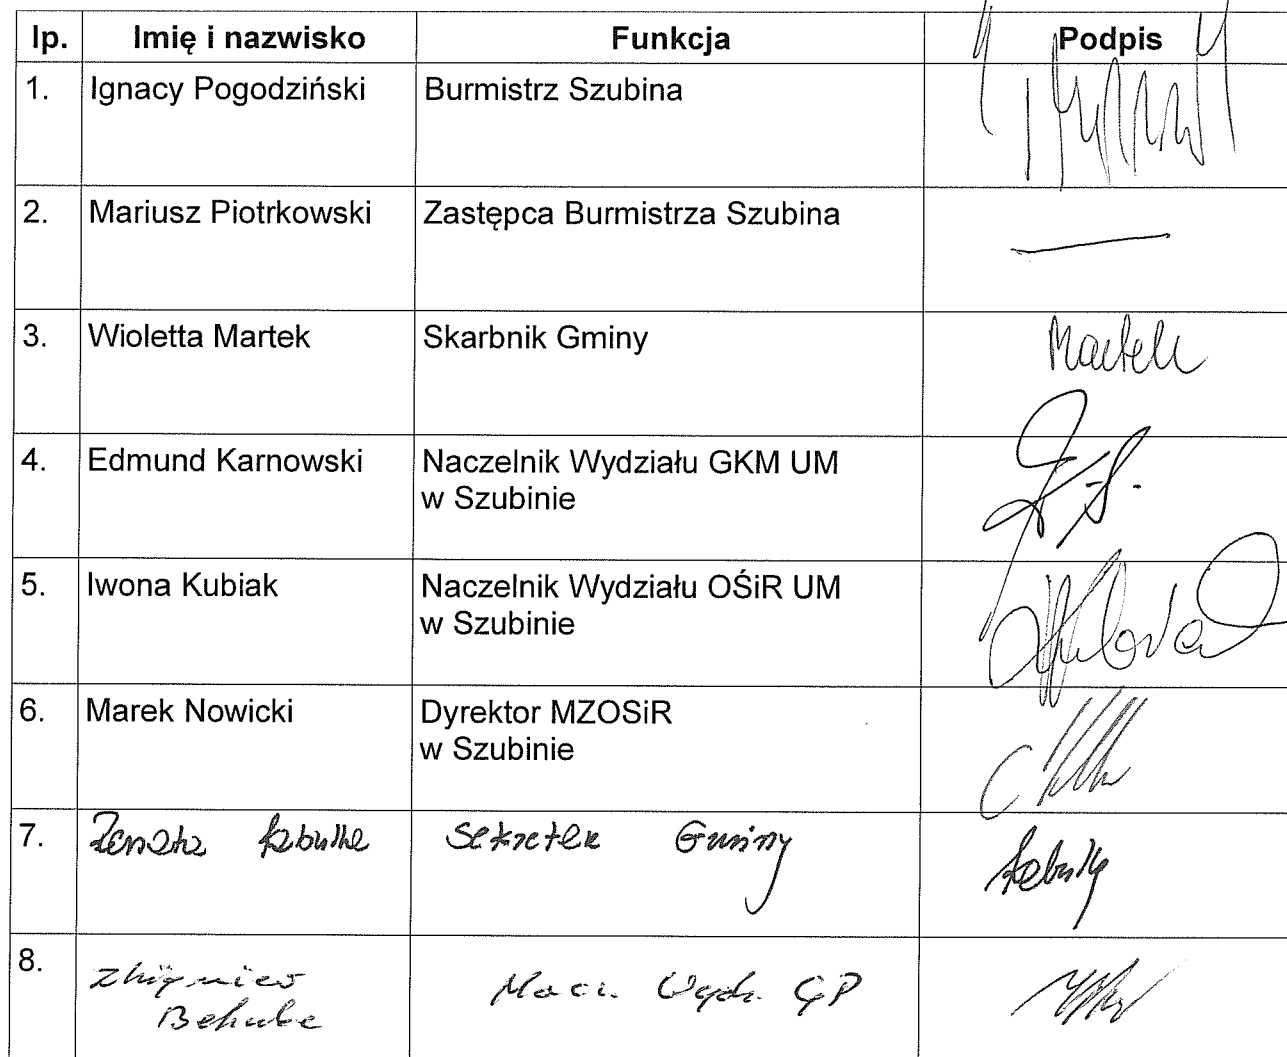 lp. Imię i nazwisko Funkcja Podpis
1. Ignacy Pogodziński Burmistrz Szubina
2. Mariusz Piotrkowski Zastępca Burmistrza Szubina
3. Wioletta Martek Skarbnik Gminy Martek
4. Edmund Karnowski Naczelnik Wydziału GKM UM
w Szubinie
5. Iwona Kubiak Naczelnik Wydziału OŚiR UM
w Szubinie
6. Marek Nowicki Dyrektor MZOSiR
w Szubinie
7. Renata Sekretarz Gminy
8. Zbigniew
GP